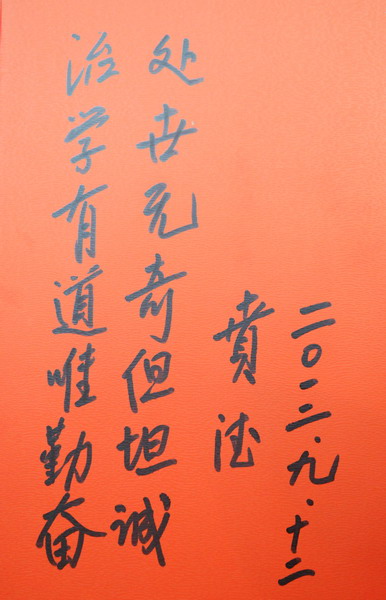 治学有道唯勤奋
处世无奇但坦诚
賁德
二〇一二.九.十二